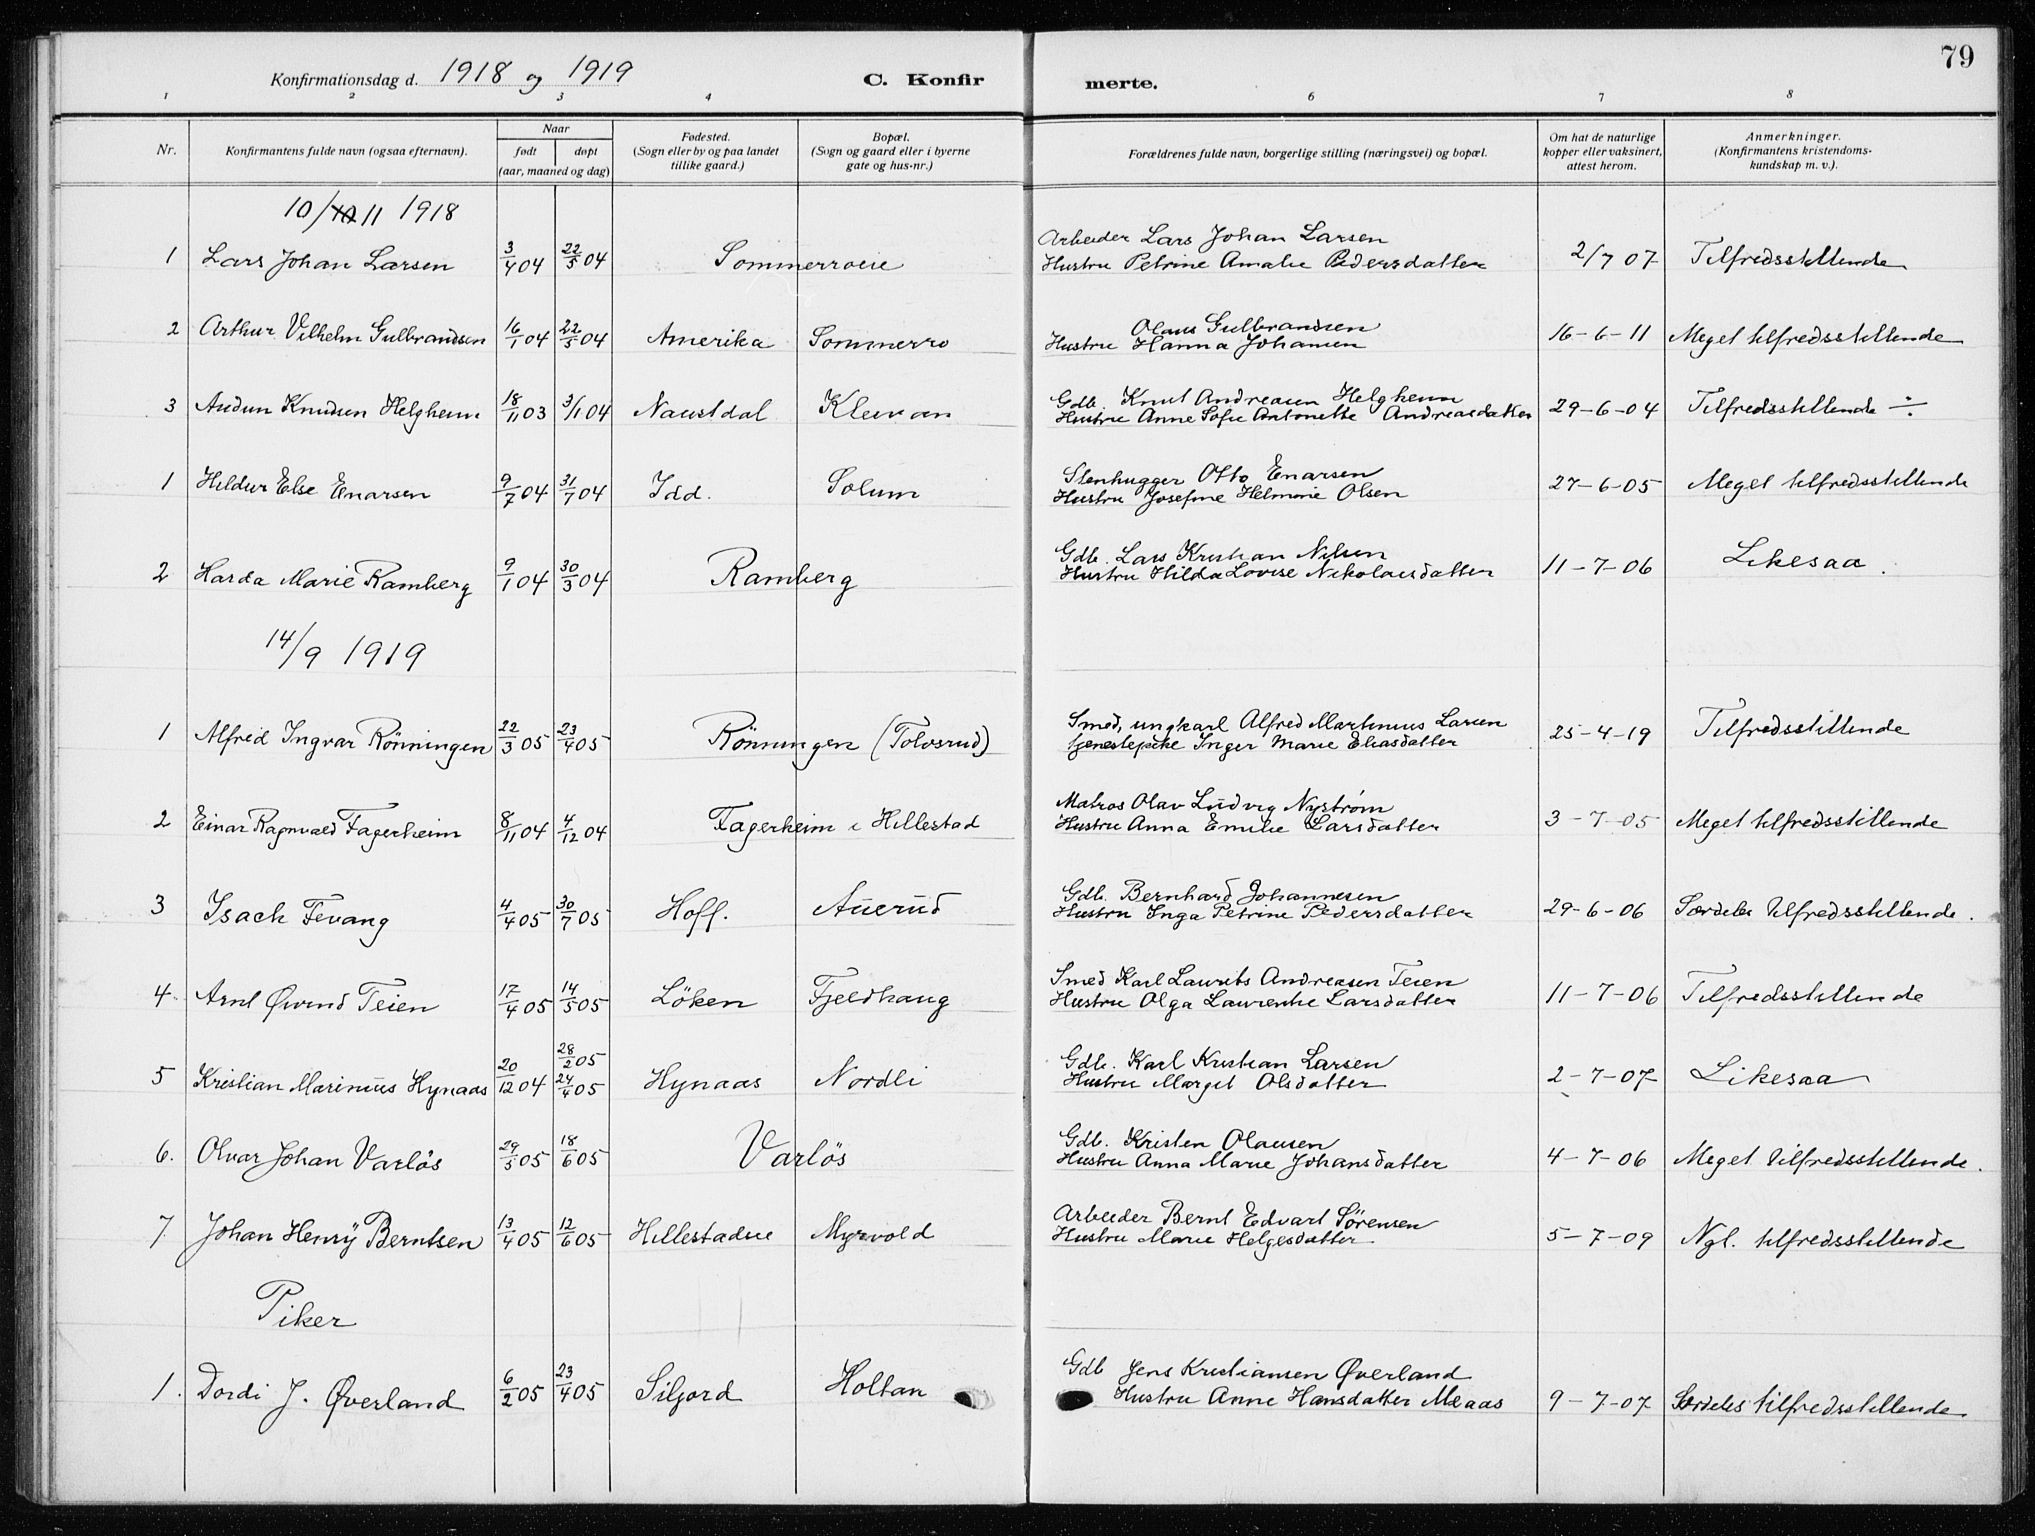 79
Konfirmationsdag d. 1918 og 1919 C. Konfirmerte.
1 2 3 4 6 7 8
Nr. Konfirmantens fulde navn (ogsaa efternavn). Naar født døpt (aar, maaned og dag) Fødested. (Sogn eller by og paa landet tillike gaard.) Bopæl. (Sogn og gaard eller i byerne gate og hus-nr.) Forældrenes fulde navn, borgerlige stilling (næringsvei) og bopæl. Om hat de naturlige kopper eller vaksinert, attest herom. Anmerkninger. (Konfirmantens kristendoms-kundskap m. v.).
10/10 11 1918
1 Lars Johan Larsen 3/4 04 22/5 04 Sommerroeie Arbeider Lars Johan Larsen 2/7 07 Tilfredsstillende
Hustru Petrine Amalie Pedersdatter
2 Arthur Vilhelm Gulbrandsen 16/1 04 22/5 04 Amerika Sommerro Olaus Gulbrandsen 16-6-11 Meget tilfredsstillende
Hustru Hanna Johansen
3 Audun Knudsen Helgheim 18/11 03 3/1 04 Naustdal Klevan Gdb. Knut Andreasen Helgheim 29-6-04 Tilfredsstillende ÷
Hustru Anne Sofie Antonette Andreasdatter
1 Hildur Else Enarsen 9/7 04 31/7 04 Idd. Solum Stenhugger Otto Enarsen 27-6-05 Meget tilfredsstillende
Hustru Josefine Helmine Olsen
2 Harda Marie Ramberg 9/1 04 30/3 04 Ramberg Gdb. Lars Kristian Nilsen 11-7-06 Likesaa.
Hustru Hilda Lovise Nikolaisdatter
14/9 1919
1 Alfred Ingvar Rönningen 22/3 05 23/4 05 Rönningen (Tolvsrud) Smed, ungkarl Alfred Martinius Larsen 25-4-19 Tilfredsstillende
tjenestepike Inger Marie Eliasdatter
2 Einar Ragnvald Fagerheim 8/11 04 4/12 04 Fagerheim i Hillestad Matros Olav Ludvig Nystrøm 3-7-05 Meget tilfredsstillende
Hustru Anna Emilie Larsdatter
3 Isach Fevang 4/4 05 30/7 05 Hoff. Auerud Gdb. Bernhard Johannesen 29-6-06 Særdeles tilfredsstillende.
Hustru Inga Petrine Pedersdatter
4 Arnt Øivind Teien 17/4 05 14/5 05 Löken Fjeldhaug Smed Karl Laurits Andreasen Teien 11-7-06 Tilfredsstillende
Hustru Olga Laurentze Larsdatter
5 Kristian Marinius Hynaas 20/12 04 28/2 05 24/4 05 Hynaas Nordli Gdb. Karl Kristian Larsen 2-7-07 Likesaa
Hustru Marget Olsdatter
6. Olvar Johan Varlös 29/5 05 18/6 05 Varlös Gdb. Kristen Olausen 4-7-06 Meget tilfredsstillende.
Hustru Anna Marie Johansdatter
7 Johan Henry Berntsen 13/4 05 12/6 05 Hillestadeie Myrvold Arbeider Bernt Edvart Sørensen 5-7-09 Ngl. tilfredsstillende
Hustru Marie Helgesdatter
Piker
1. Dordi J. Øverland 6/2 05 23/4 05 Siljord Holtan Gdb Jens Kristiansen Øverland 9-7-07 Særdeles tilfredsstillende
Hustru Anne Hansdatter Meaas